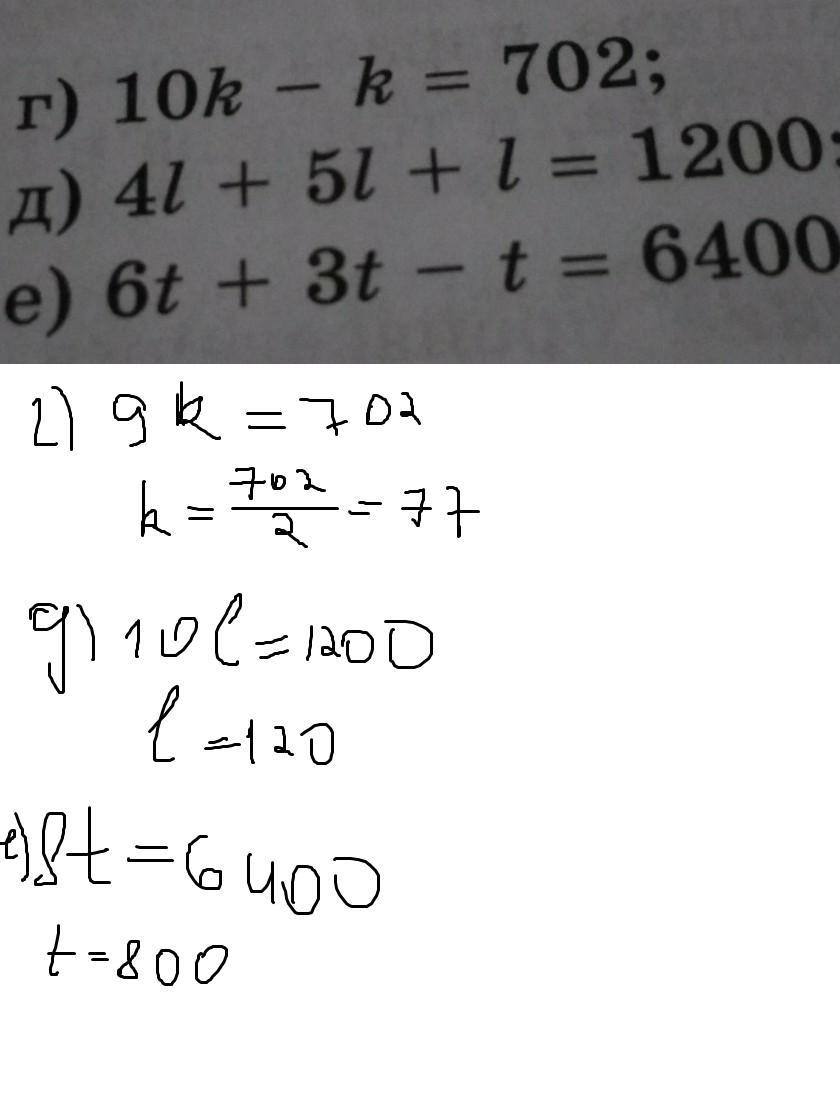 г) 10k − k = 702;
д) 4l + 5l + l = 1200;
е) 6t + 3t − t = 6400
г) 9k = 702
k = 702/2 = 77
g) 10l = 1200
l = 120
е) 8t = 6400
t = 800